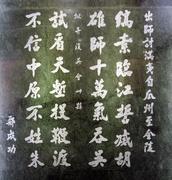 出師討滿夷自瓜州至金陵
縞素臨江誓滅胡
雄師十萬氣吞吳
試看天塹投鞭渡
不信中原不姓朱
鄭成功